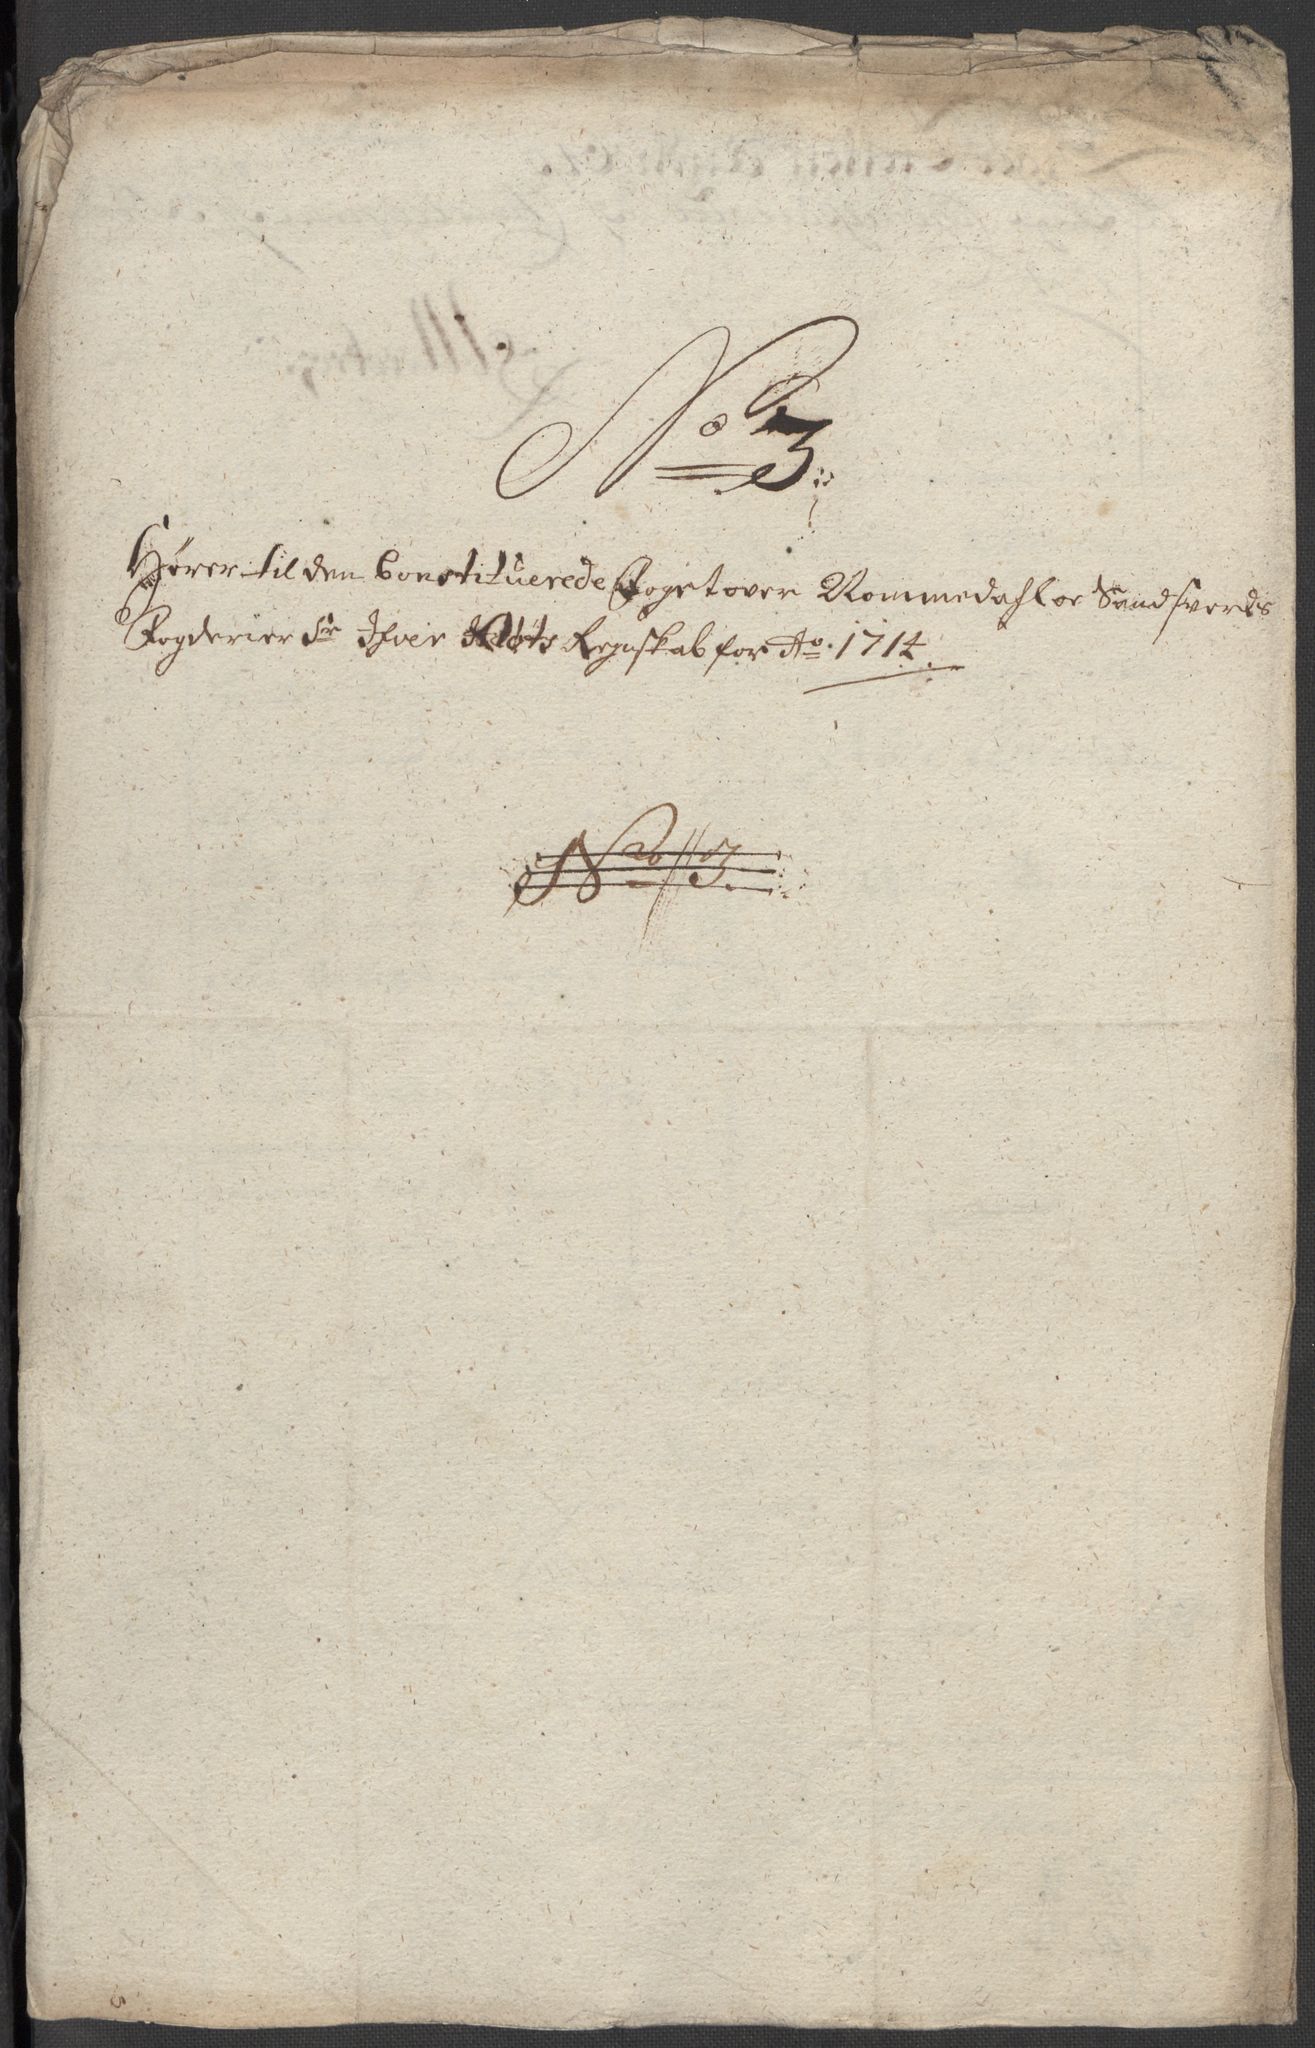 No 3
Hörer til den Constituerede Foget over Nommedahl oc Sandsverds
Fogderier Sr Ifver Regnskab for Ao. 1714.
No 3.